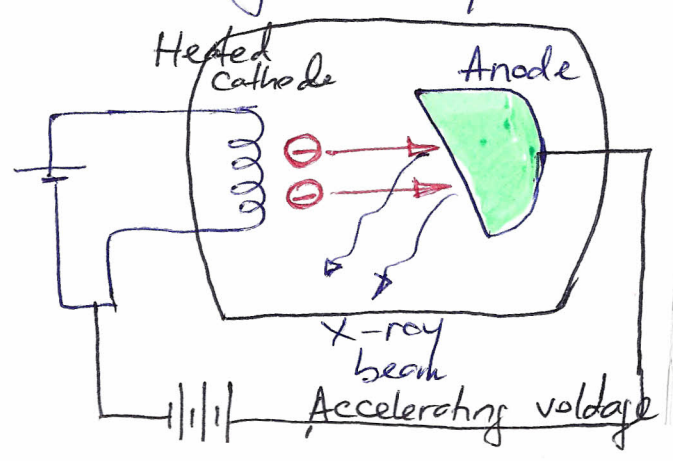 Heated
cathode
Anode
X-ray
beam
Accelerating voldage